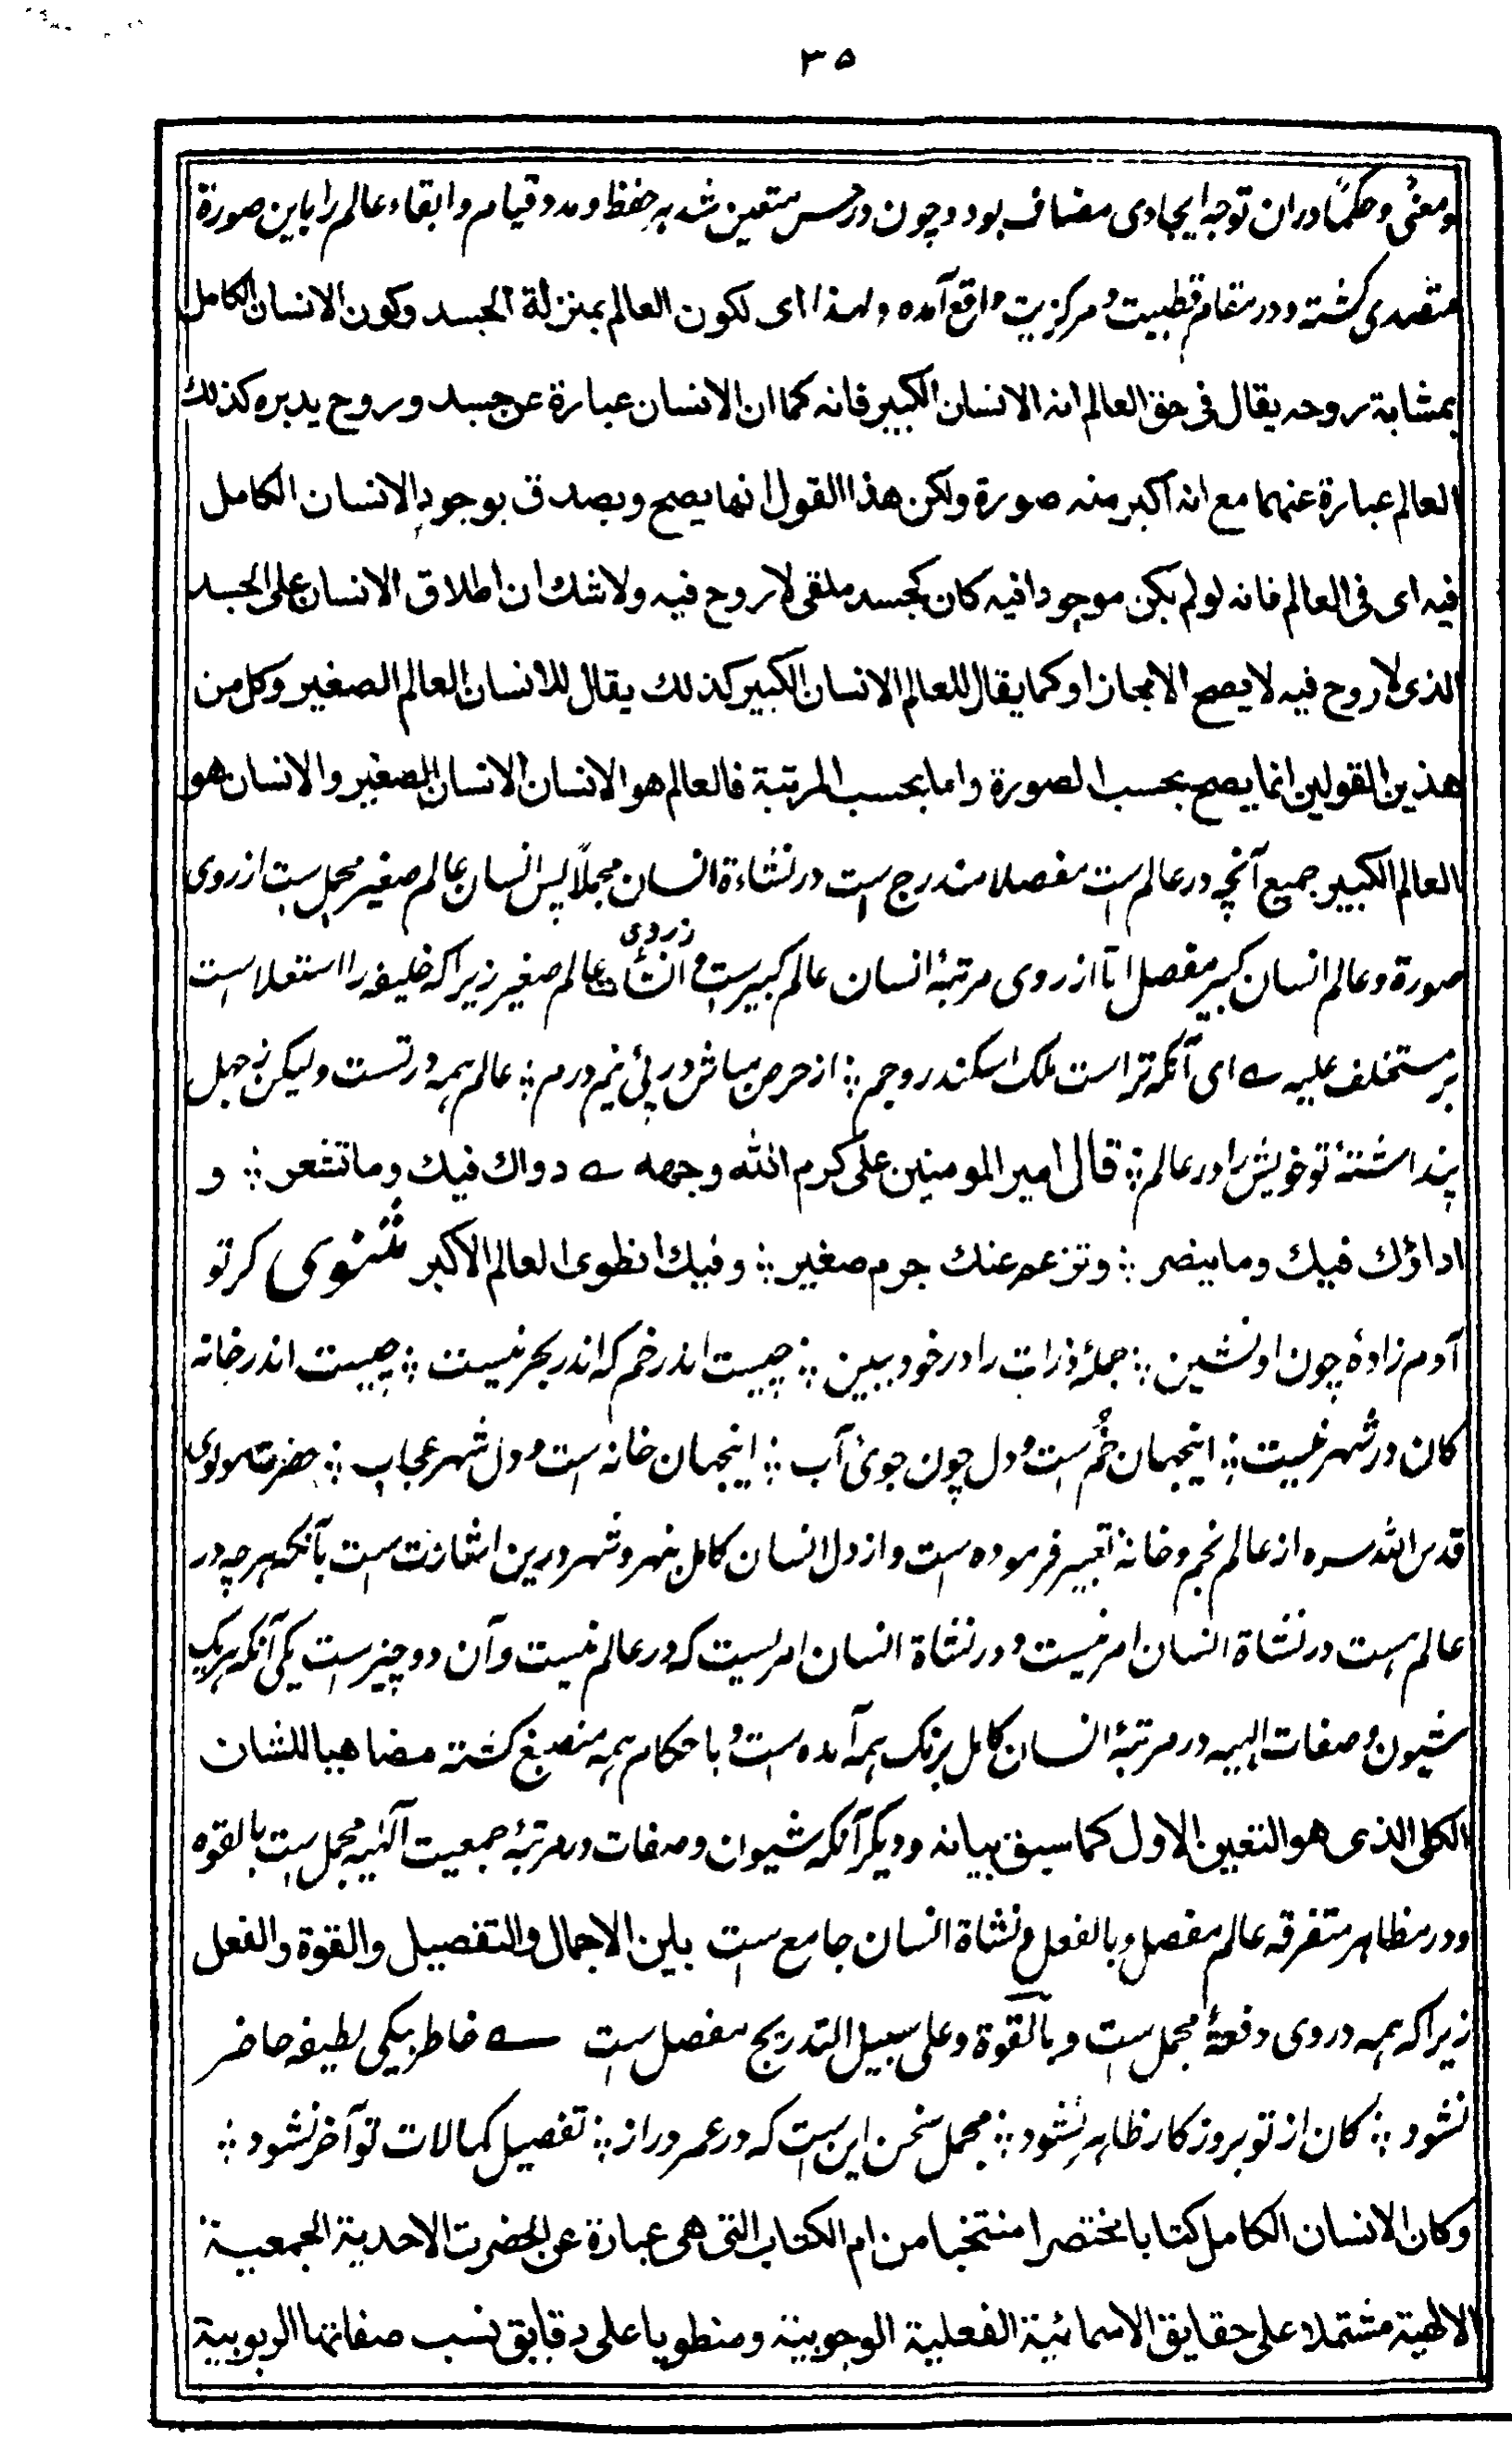 ۳۵
ومعنیً وحکمًا دران توجه ایجادی مضاف بود و چون در حس متعین شد به حفظ و مدد قیام و ابقاء عالم را باین صورة
متصدی گشته و در مقام قطبیت و مرکزیت واقع آمده ولهذا ای لکون العالم بمنزلة الجسد وکون الانسان الکامل
بمثابة روحه یقال فی حق العالم انه الانسان الکبیر فانه کما ان الانسان عبارة عن جسد وروح یدبره کذلك
العالم عبارة عنهما مع انه اکبر منه صورة ولکن هذا القول انما یصح ویصدق بوجود الانسان الکامل
فیه ای فی العالم فانه لو لم یکن موجودا فیه کان کجسد ملقی لا روح فیه ولا شك ان اطلاق الانسان علی الجسد
الذی لا روح فیه لا یصح الا مجازا وکما یقال للعالم الانسان الکبیر کذلك یقال للانسان العالم الصغیر وکل من
هذین القولین انما یصح بحسب الصورة واما بحسب المرتبة فالعالم هو الانسان الانسان الصغیر والانسان هو
العالم الکبیر جمیع آنچه در عالم است مفصلا مندرج است در نشاءة انسان مجملاً پس انسان عالم صغیر مجمل ست از روی
صورة و عالم انسان کبیر مفصل اما از روی مرتبۀ انسان عالم کبیرست و عالم صغیر زیرا که خلیفه را استعلا است
بر مستخلف علیه ے ای آنکه تراست ملک اسکندر و جم ؛ از حرص مباش در پئی نیم درم ؛ عالم همه در تست ولیکن ز جهل
پنداشتۀ تو خویش را در عالم ؛ قال امیر المومنین علی کرم الله وجهه ے دواك فیك وما تشعر ؛ و
اداؤك فیك وما یبضر ؛ وتزعم عنك جرم صغیر ؛ وفیك انطوی العالم الاکبر مثنوی کر تو
آدم زادۀ چون او نشین ؛ جملۀ ذرات را در خود ببین ؛ چیست اندر خم که اندر بحر نیست ؛ چیست اندر خانه
کان در شهر نیست ؛ اینجهان خُم است و دل چون جوئ آب ؛ اینجهان خانه است و دل شهر عجاب ؛ حضرت مولوی
قدس الله سره از عالم بخم و خانه تعبیر فرموده است و از دل انسان کامل بنهر و شهر درین اشارت است بآنکه هرچه در
عالم است در نشاة انسان امر نیست و در نشاة انسان امریست که در عالم نیست و آن دو چیز ست یکی آنکه هریک
شیون و صفات الهیه در مرتبۀ انسان کامل برنک همه آمده است و باحکام همه منصبغ کشته مضاهیا للشان
الکلی الذی هو التعین الاول کما سبق بیانه و دیگر آنکه شیون و صفات در مرتبۀ جمعیت آلهیه مجمل ست بالقوه
و در مظاهر متفرقه عالم مفصل و بالفعل و نشاة انسان جامع ست بلین الاجمال والتفصیل والقوة والفعل
زیرا که همه در وی دفعةً مجمل ست و بالقوة وعلی سبیل التدریج مفصل ست ے خاطر بیکی لطیفه حاضر
نشود ؛ کان از تو بروز کار ظاهر نشود ؛ مجمل سخن این ست که در عمر دراز ؛ تفصیل کمالات تو آخر نشود ؛
وکان الانسان الکامل کتابا مختصرا منتخبا من ام الکتاب التی هی عبارة عن الحضرت الاحدیة الجمعیة
الالهیة مشتملا علی حقایق الاسمائیة الفعلیة الوجوبیة ومنطویا علی دقایق نسب صفاتها الربوبیة